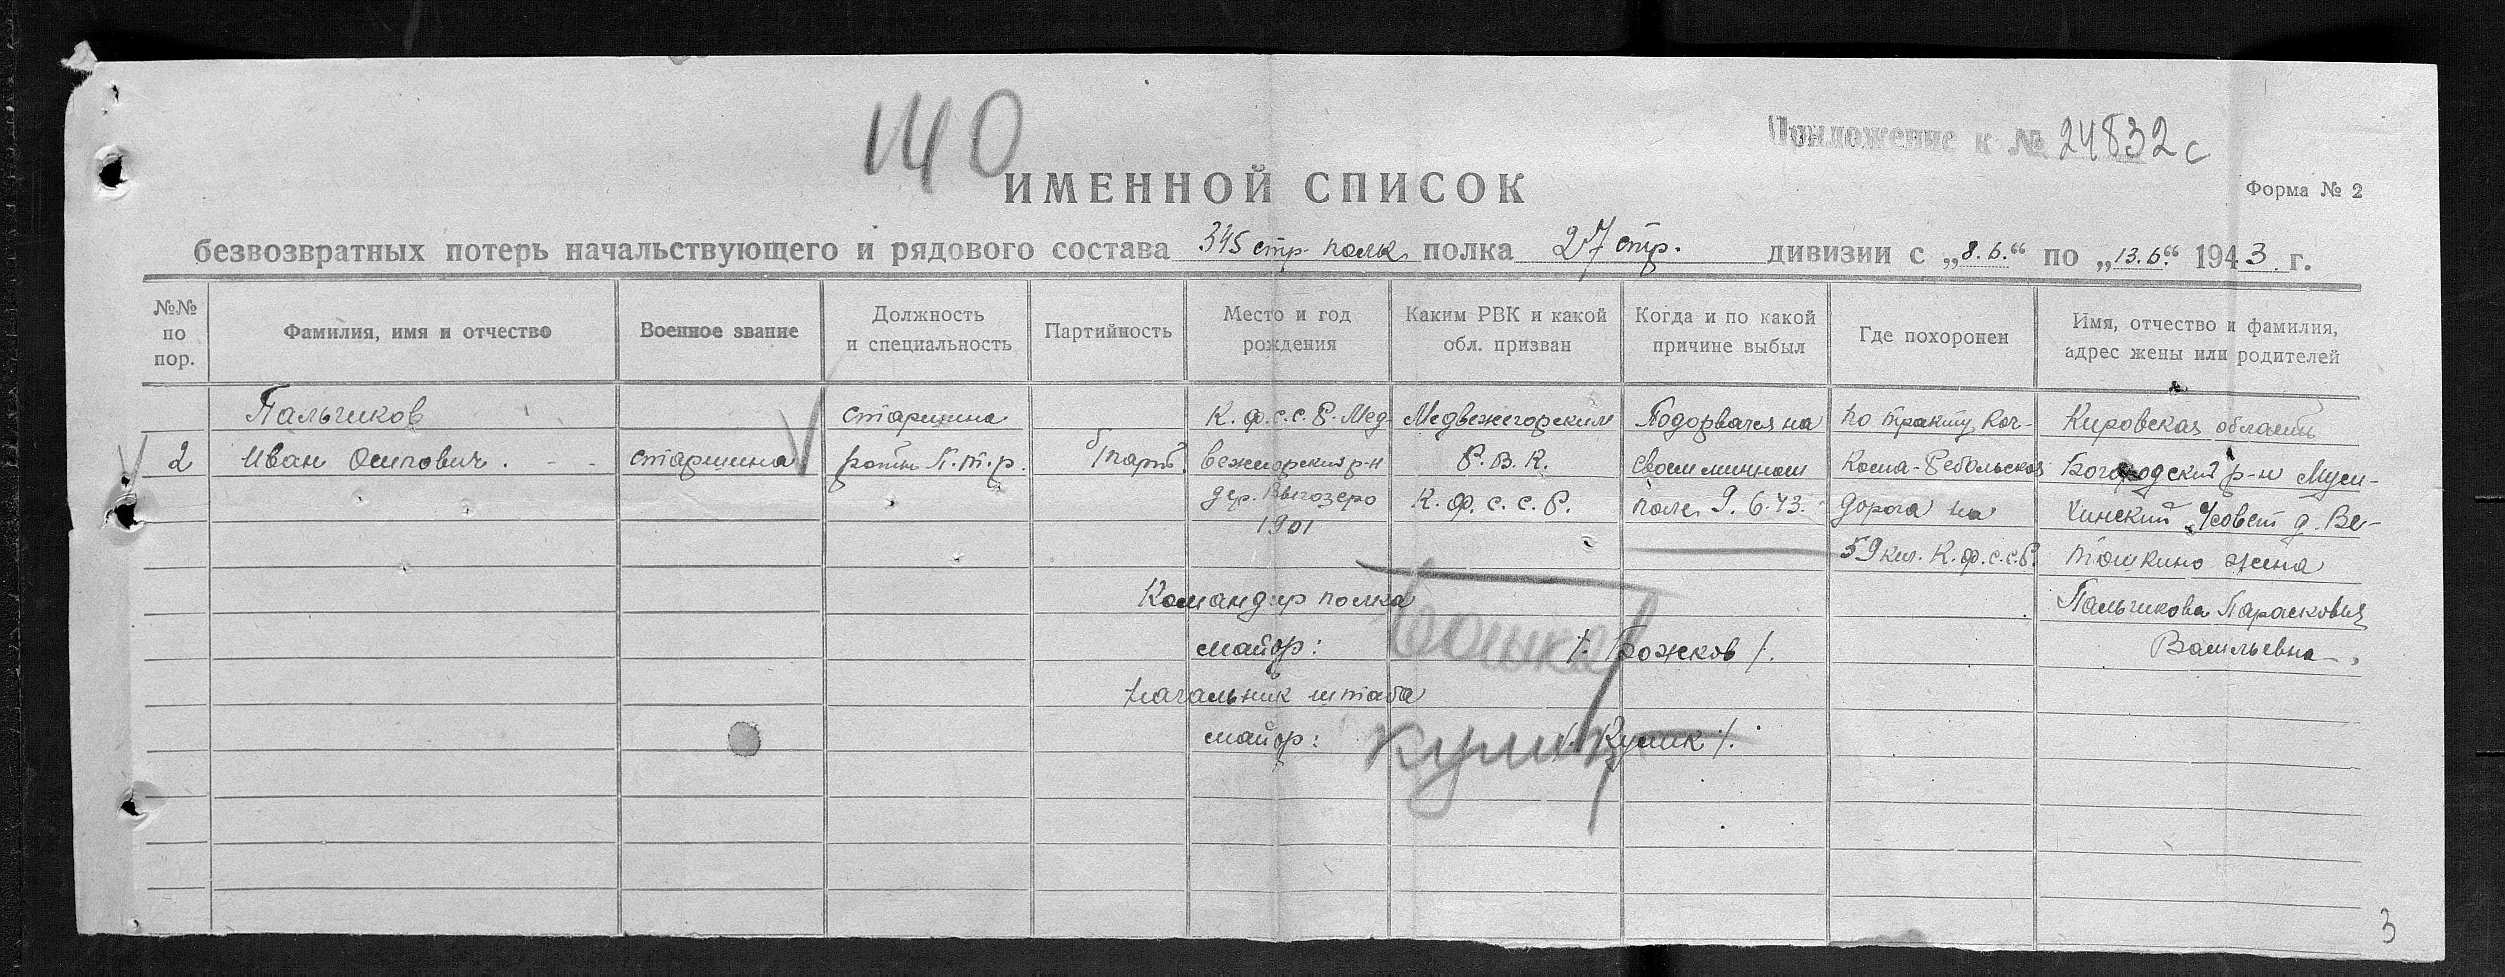 140
Приложение к № 24832с
ИМЕННОЙ СПИСОК
Форма № 2
безвозвратных потерь начальствующего и рядового состава 345 стр. полк. полка 27 стр. дивизии с „8.6.“ по „13.6.“ 1943 г.
№№ по пор.
Фамилия, имя и отчество
Военное звание
Должность и специальность
Партийность
Место и год рождения
Каким РВК и какой обл. призван
Когда и по какой причине выбыл
Где похоронен
Имя, отчество и фамилия, адрес жены или родителей
2
Пальчиков
Иван Осипович.
старшина
старшина
роты П.т.р.
б/парт.
К.ф.с.с.Р. Мед-
вежиорский р-н
дер. Выгозеро
1901
Медвежегорским
Р.В.К.
К.ф.с.с.Р.
Подорвался на
своем минном
поле 9.6.43.
по тракту Коч-
кома-Ребольская
дорога на
59 км. К.ф.с.с.Р.
Кировская область
Богородский р-н Муси-
хинский с/совет д. Ве-
тошкино жена
Пальчикова Парасковия
Васильевна.
Командир полка
майор: /. Божков /.
Начальник штаба
майор: Кулик /. Кулик /.
3